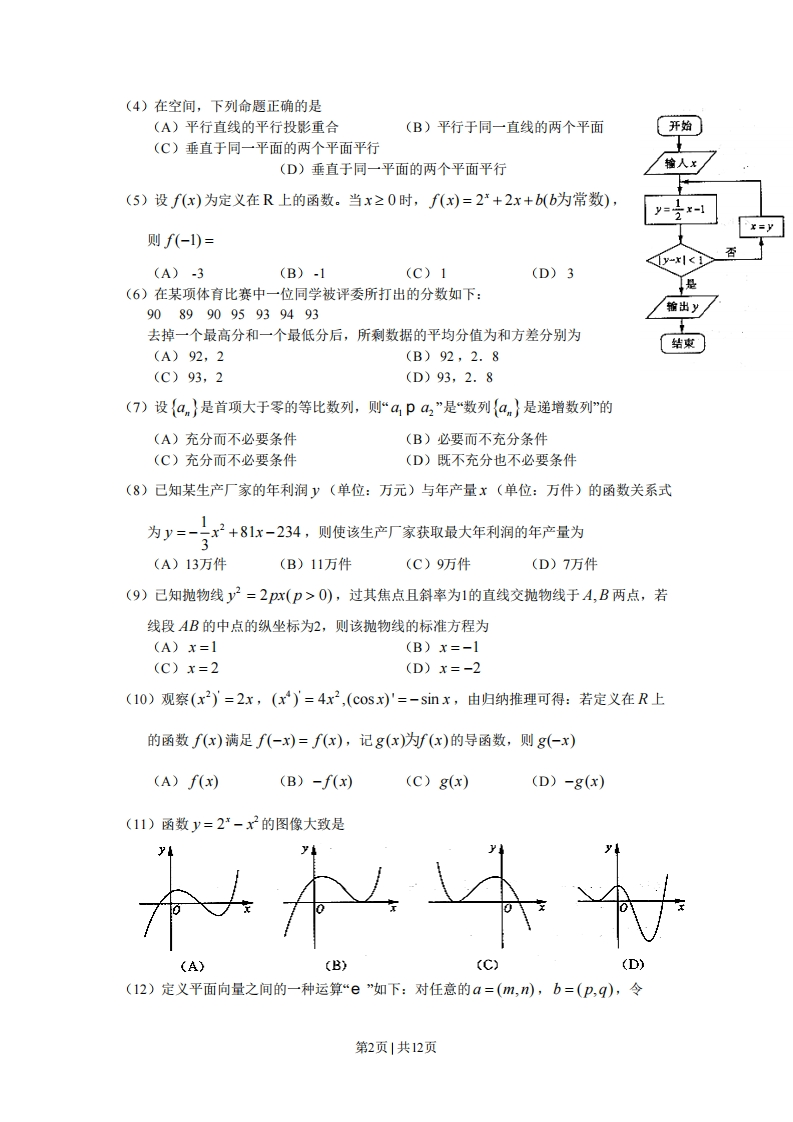 （4）在空间，下列命题正确的是
（A）平行直线的平行投影重合 （B）平行于同一直线的两个平面
（C）垂直于同一平面的两个平面平行
（D）垂直于同一平面的两个平面平行
（5）设 f(x) 为定义在 R 上的函数。当 x ≥ 0 时， f(x) = 2^x + 2x + b(b为常数)，
则 f(−1) =
（A） -3 （B） -1 （C） 1 （D） 3
（6）在某项体育比赛中一位同学被评委所打出的分数如下：
90 89 90 95 93 94 93
去掉一个最高分和一个最低分后，所剩数据的平均分值为和方差分别为
（A） 92，2 （B） 92 ，2．8
（C） 93，2 （D）93，2．8
开始
输入 x
y = 1/2 x − 1
x = y
|y−x| < 1
否
是
输出 y
结束
（7）设 {a_n} 是首项大于零的等比数列，则“ a_1 p a_2 ”是“数列 {a_n} 是递增数列”的
（A）充分而不必要条件 （B）必要而不充分条件
（C）充分而不必要条件 （D）既不充分也不必要条件
（8）已知某生产厂家的年利润 y （单位：万元）与年产量 x （单位：万件）的函数关系式
为 y = − 1/3 x^2 + 81x − 234 ，则使该生产厂家获取最大年利润的年产量为
（A）13万件 （B）11万件 （C）9万件 （D）7万件
（9）已知抛物线 y^2 = 2px(p > 0) ，过其焦点且斜率为1的直线交抛物线于 A, B 两点，若
线段 AB 的中点的纵坐标为2，则该抛物线的标准方程为
（A） x = 1 （B） x = −1
（C） x = 2 （D） x = −2
（10）观察 (x^2)' = 2x ， (x^4)' = 4x^2 ,(cos x)' = − sin x ，由归纳推理可得：若定义在 R 上
的函数 f(x) 满足 f(−x) = f(x) ，记 g(x)为f(x) 的导函数，则 g(−x)
（A） f(x) （B） −f(x) （C） g(x) （D） −g(x)
（11）函数 y = 2^x − x^2 的图像大致是
y y y y
O x O x O x O x
(A) (B) (C) (D)
（12）定义平面向量之间的一种运算“e ”如下：对任意的 a = (m, n) ， b = (p, q) ，令
第2页 | 共12页